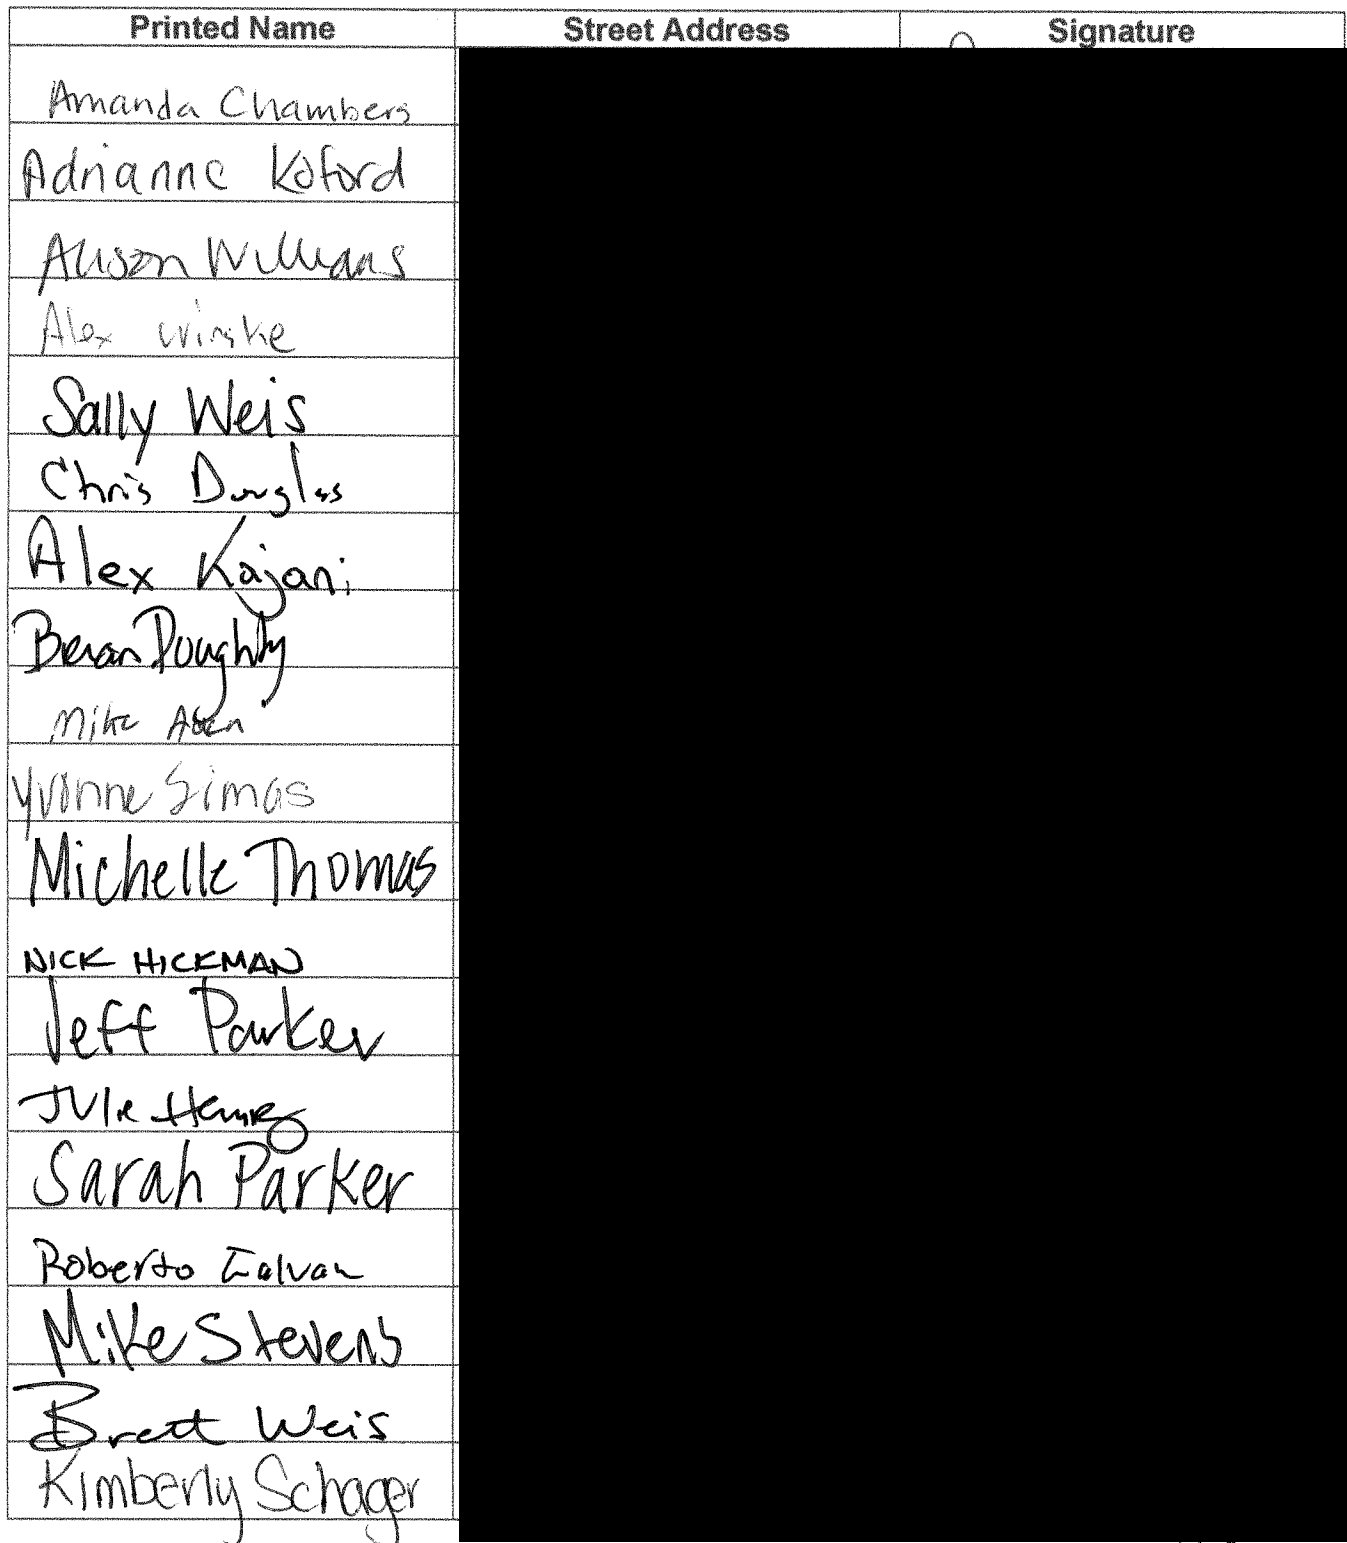 Printed Name Street Address Signature
Amanda Chambers
Adrianne Koford
Alison Williams
Alex Winske
Sally Weis
Chris Douglas
Alex Kajani
Brian Doughty
Mike Aben
Yvonne Simas
Michelle Thomas
NICK HICKMAN
Jeff Parker
Julie Henry
Sarah Parker
Roberto Galvan
Mike Stevens
Brett Weis
Kimberly Schager